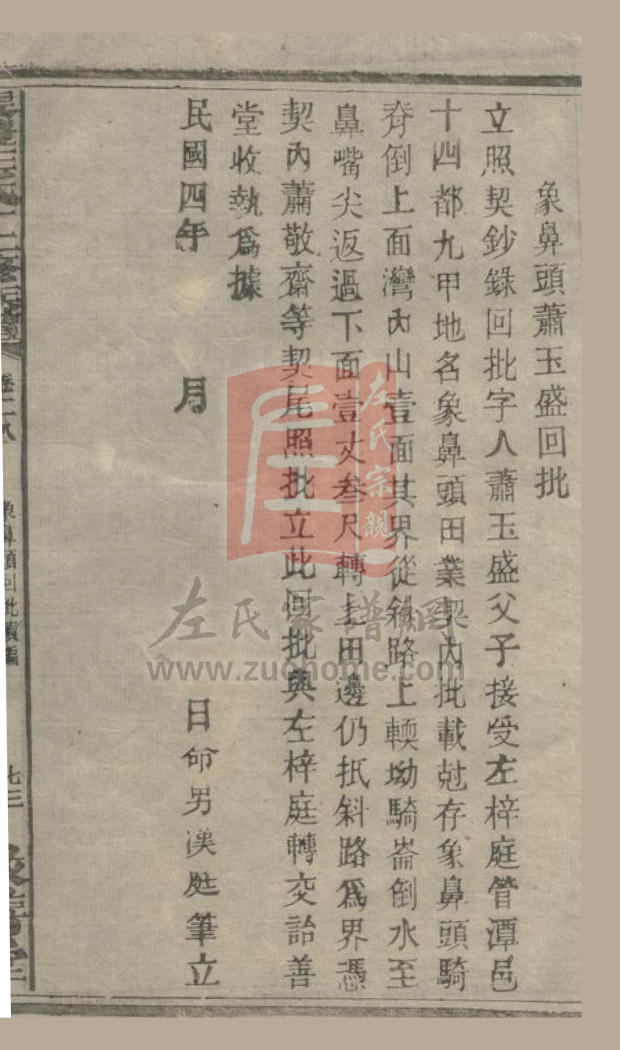 象鼻頭蕭玉盛回批
立照契鈔錄回批字人蕭玉盛父子接受左梓庭管潭邑
十四都九甲地名象鼻頭田業契內批載尅存象鼻頭騎
脊倒上面灣內山壹面其界從斜路上輭坳騎崙倒水至
鼻嘴尖返過下面壹丈叁尺轉上田邊仍抵斜路爲界憑
契內蕭敬齋等契尾照批立此回批與左梓庭轉交詒善
堂收執爲據
民國四年　月　日命男漢
筆立
卷二八
象鼻頭回批
七三
左氏宗親
左氏家譜網
www.zuohome.com